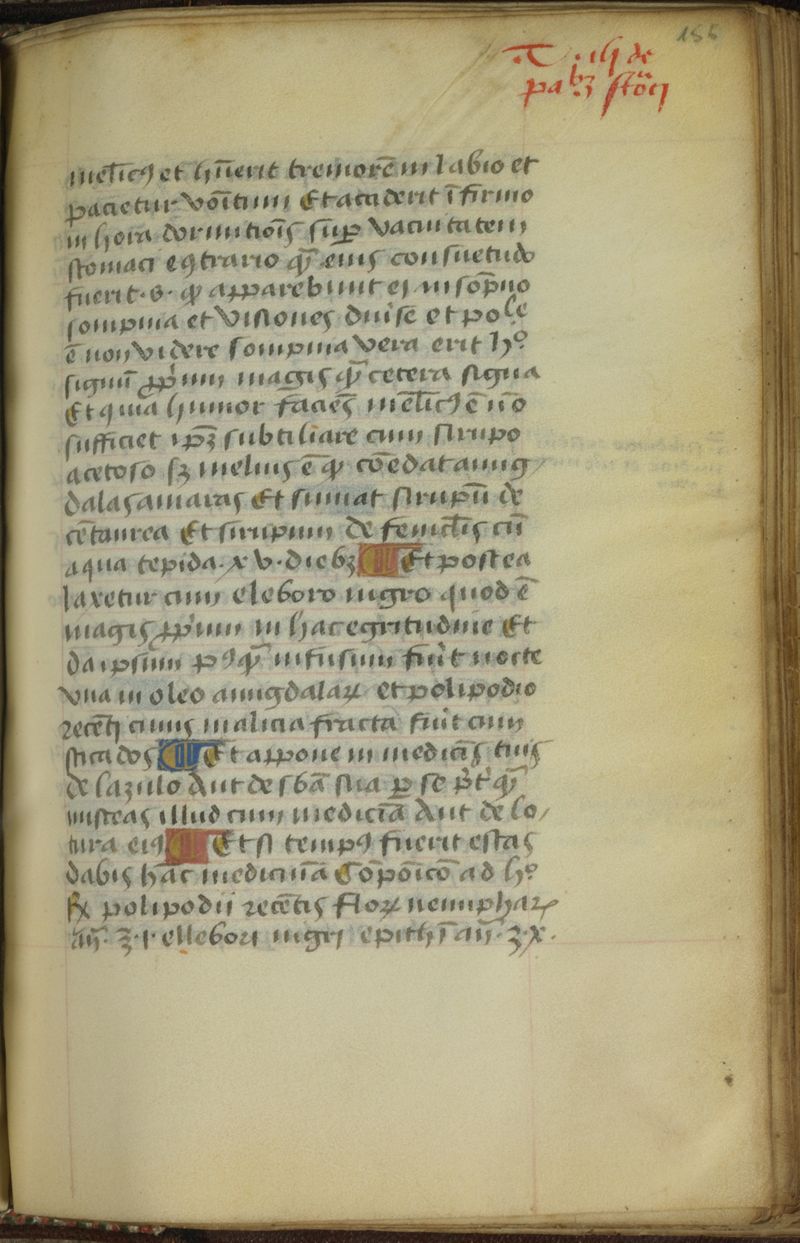 155
T. iii de
pa bꝫ sto̅ci
mel̅icꝯ et hu̅erit tremore̅ in labio et
pacietur vo̅itum Et acciderit i̅firmo
in hora dormicio̅is su̅ꝑ vacuitatem
stomaci eꝯtrario ꝙ̅ eius consuetudo
fuerit · 6 · ꝙ apparebunt ei in sop̅no
sompnia et visiones diu̅se et pol̅e
e̅ non videre sompnia vera erit hº
signu̅ ꝓp̅ium magis ꝙ̅ cetera signa
Et quia humor facie̅s mel̅icꝯ e̅ no̅
sufficiet ip̅ꝫ subtiliare cum sirupo
acetoso sꝫ melius e̅ ꝙ co̅edat amig
dalas amaras Et sumat sirupu̅ de
ce̅taurea Et sirupum de fenicl̅is cu̅
aqua tepida · xv · diebꝫ Et postea
laxetur cum eleboro nigro quod e̅
magis ꝓp̅ium in hac egritudine Et
da ipsum pꝯꝙ̅ infusum fu̅it nocte
vna in oleo amigdalaꝝ et polipodio
rece̅ti cuius malicia fracta fu̅it cum
sticados Et appone in medici̅s tuis
de lazulo Aut de sba̅ sua ꝑ se p̅t̅ ꝙ̅
misceas illud cum medici̅a Aut de lo
tura eiꝯ Et si tempꝯ fuerit estas
dabis ha̅c medicina̅ Co̅po̅ico̅ ad hº
℞ polipodii rece̅tis floꝝ nemiphaꝝ
an̅ · ʒ · i · ellebori nigri epithi̅ an̅ · ʒ · x ·